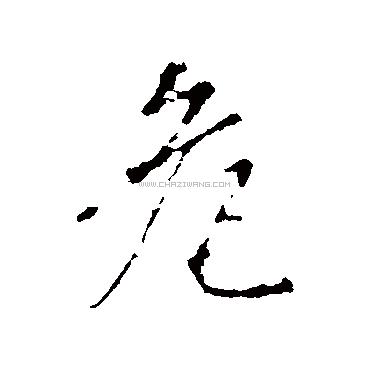 危
WWW.CHAZIWANG.COM